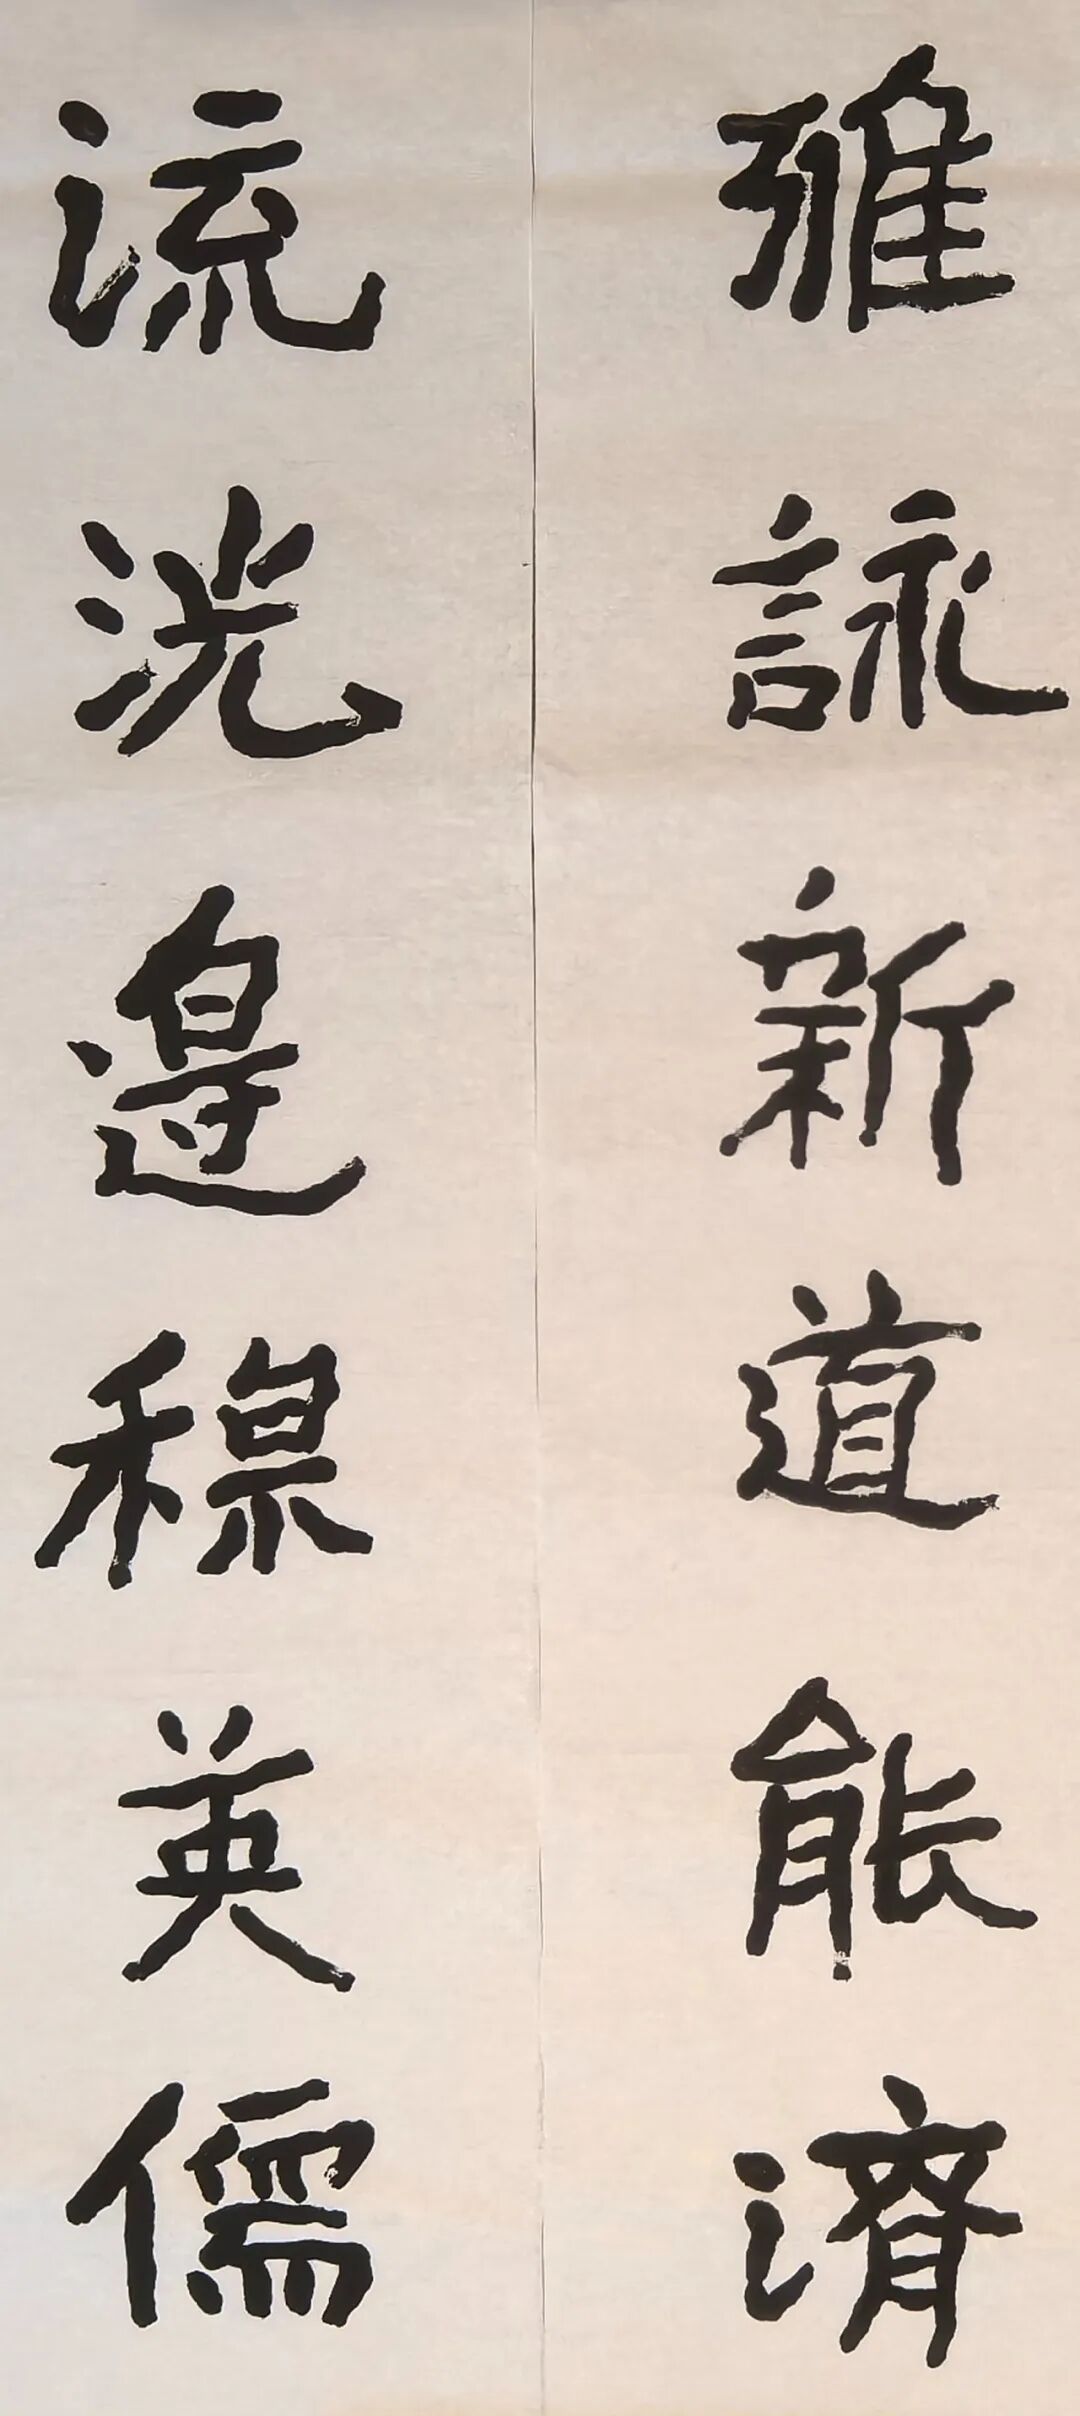 雅詠新道能濟
流洸邊穆英儒